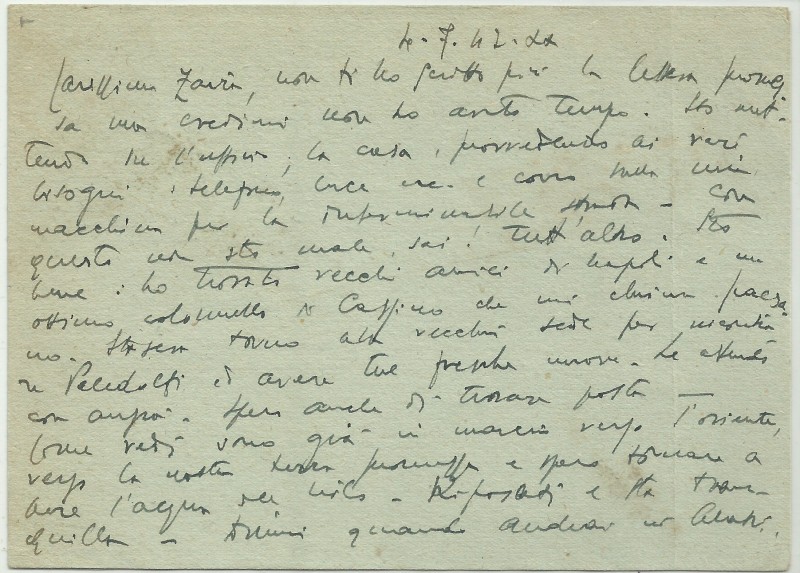 4-7-42-XX
Carissima Zaira, non ti ho scritto più la lettera promes
sa ma credimi non ho avuto tempo. Sto met-
tendo su l'ufficio, la casa, provvedendo ai vari
bisogni: telefono, luce ecc. e corro sulla mia
macchina per la interminabile strada - Con
questo non sto male, sai! Tutt'altro. Sto
bene: ho trovato vecchi amici di Napoli e un
ottimo colonnello di Cassino che mi chiama paesa-
no. Stasera torno alla vecchia sede per
re e avere tue fresche nuove. Le attendo
con ansia. Spero anche di trovare posta
Come vedi sono già in marcia verso l'oriente,
verso la nostra terra promessa e spero tornare a
bere l'acqua del Nilo - Riposati e sta tran-
quilla - Dimmi quando andrai ad Alatri.